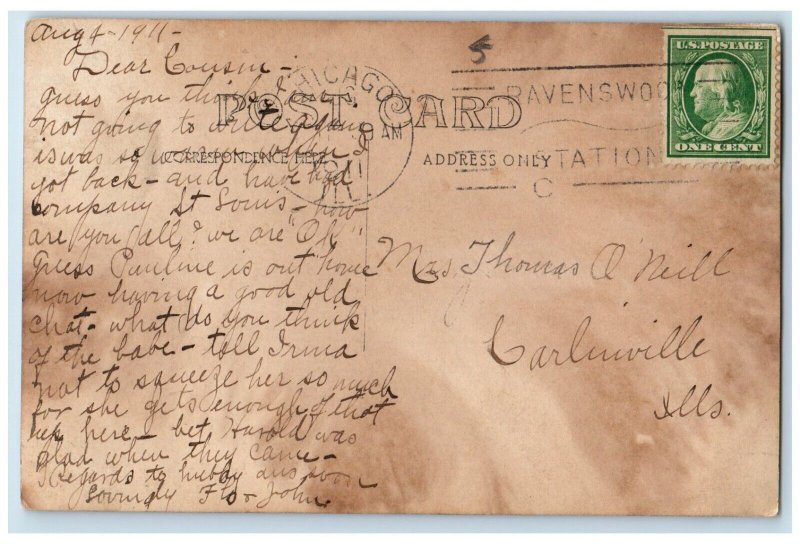 Aug 4 - 1911 -
Dear Cousin -
guess you think I
not going to write again
is was so when
got back - and have had
company St Louis - how
are you all? we are "OK"
guess Pauline is out home
now having a good old
chat - what do you think
of the babe - tell Irma
not to squeeze her so much
for she gets enough of that
up here - bet Harold was
glad when they came -
Regards to hubby ans soon
Lovingly Flo & John
POST CARD
CORRESPONDENCE HERE
ADDRESS ONLY
CHICAGO
AM
1911
ILL
RAVENSWOOD
STATION
C
5
U.S. POSTAGE
ONE CENT
Mrs Thomas O'Neill
Carlinville
Ills.